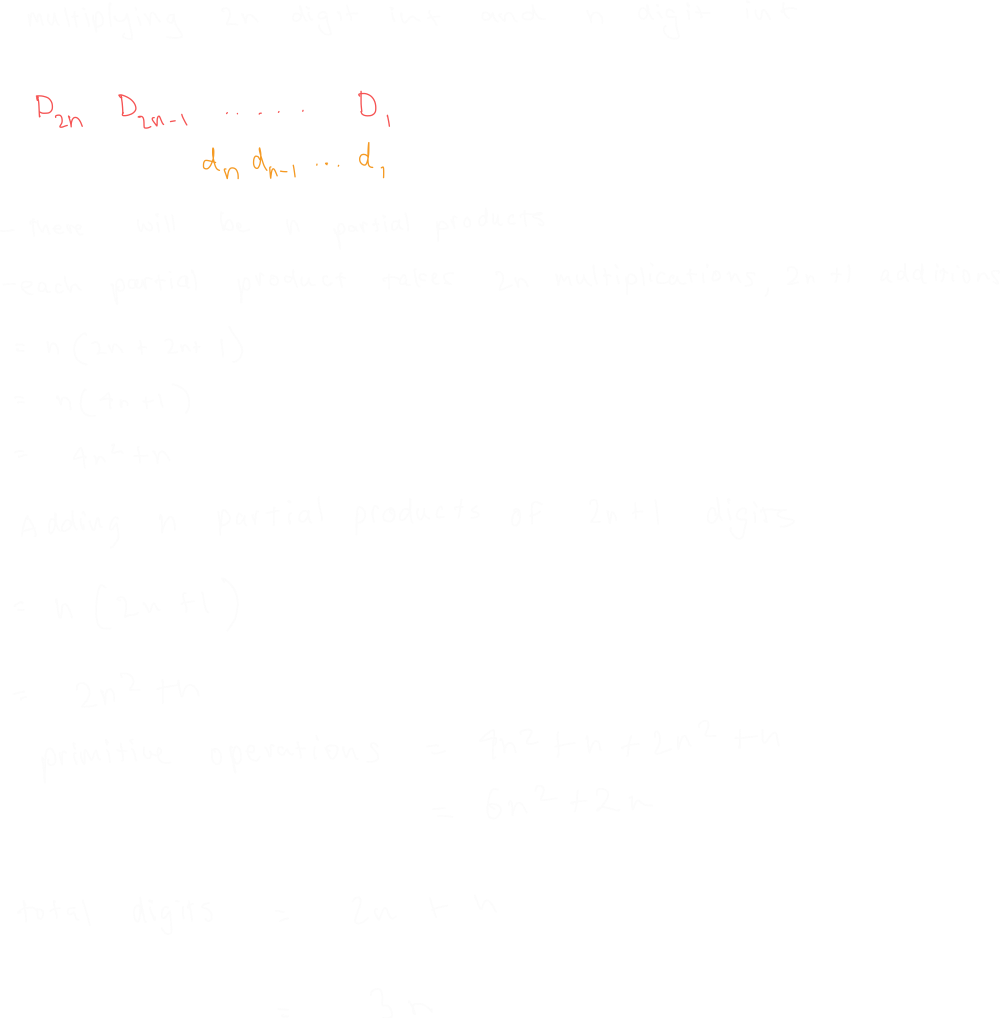 multiplying 2n digit int and n digit int
D₂ₙ D₂ₙ₋₁ ..... D₁
dₙ dₙ₋₁ ... d₁
- there will be n partial products
- each partial product takes 2n multiplications, 2n+1 additions
= n(2n + 2n+1)
= n(4n+1)
= 4n² + n
Adding n partial products of 2n+1 digits
= n(2n+1)
= 2n² + n
primitive operations = 4n² + n + 2n² + n
= 6n² + 2n
total digits = 2n + n
= 3n